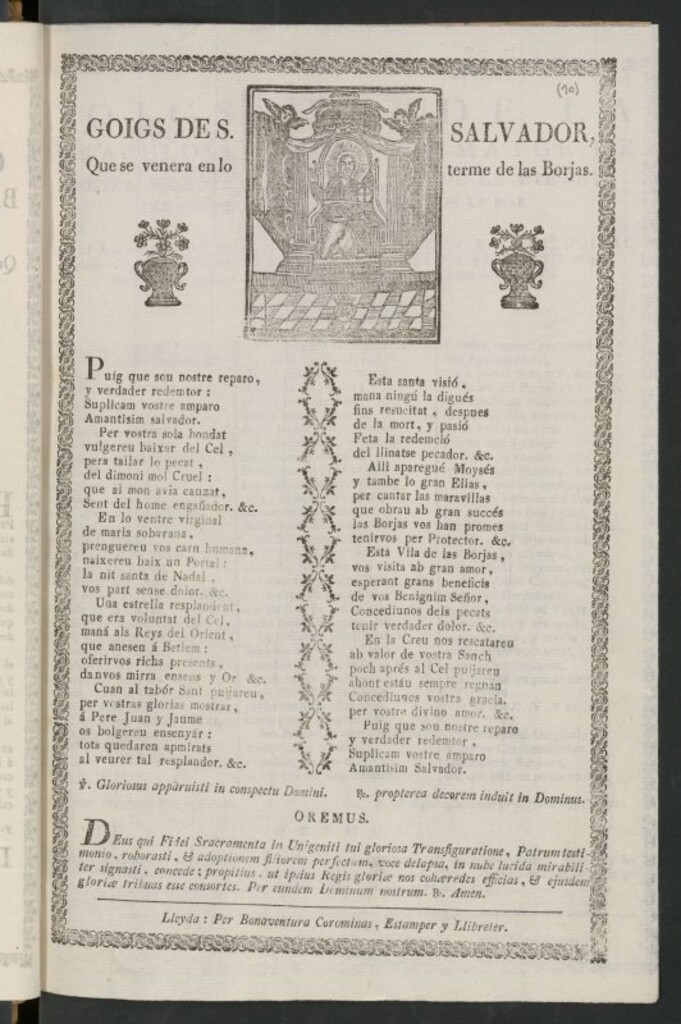 (10)
GOIGS DE S. SALVADOR,
Que se venera en lo terme de las Borjas.
Puig que sou nostre reparo,
y verdader redemtor :
Suplicam vostre amparo
Amantisim salvador.
Per vostra sola bondat
vulgereu baixar del Cel ,
pera tallar lo pecat ,
del dimoni mol Cruel :
que al mon avia cauzat,
Sent del home engañador. &c.
En lo ventre virginal
de maria soburana,
prenguereu vos carn humana,
naixereu baix un Portal :
la nit santa de Nadal ,
vos part sense dolor. &c.
Una estrella resplandent,
que era voluntat del Cel,
maná als Reys del Orient,
que anesen á Betlem :
oferirvos richs presents,
danvos mirra ensens y Or &c.
Cuan al tabór Sant pujareu,
per vostras glorias mostrar,
á Pere Juan y Jaume
os bolgereu ensenyár :
tots quedaren apmirats
al veurer tal resplandor. &c.
Esta santa visió ,
mana ningú la digués
fins resucitat , despues
de la mort, y pasió
Feta la redemció
del llinatse pecador. &c.
Alli aparegué Moysés
y tambe lo gran Elias,
per cantar las maravillas
que obrau ab gran succés
las Borjas vos han promes
tenirvos per Protector. &c.
Esta Vila de las Borjas,
vos visita ab gran amor,
esperant grans beneficis
de vos Benignim Señor,
Concediunos dels pecats
tenir verdader dolor. &c.
En la Creu nos rescatareu
ab valor de vostra Sanch
poch aprés al Cel pujareu
ahont estáu sempre regnan
Concediunos vostra gracia,
per vostre divino amor. &c.
Puig que sou nostre reparo
y verdader redemtor ,
Suplicam vostre amparo
Amantisim Salvador.
℣. Gloriosus apparuisti in conspectu Domini. ℟. propterea decorem induit in Dominus.
OREMUS.
DEus qui Fidei Sracramenta in Unigeniti tui gloriosa Transfiguratione, Patrum testi-
monio, roborasti, & adoptionem filiorem perfectam, voce delapsa, in nube lucida mirabili-
ter signasti, concede; propitius, ut ipsius Regis gloriæ nos cohæredes efficias, & ejusdem
gloriæ tribuas esse consortes. Per eundem Dominum nostrum. ℟. Amen.
Lleyda : Per Bonaventura Corominas, Estamper y Llibreter.